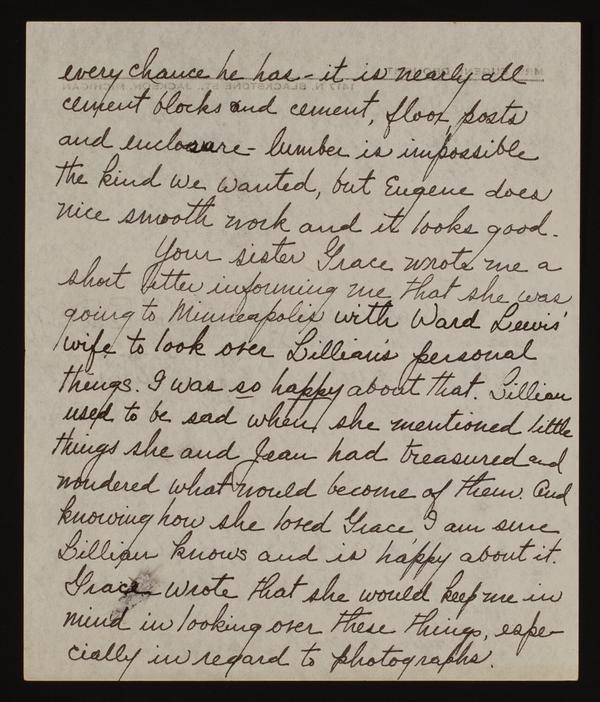 every chance he has - it is nearly all
cement blocks and cement, floor, posts
and enclosure - lumber is impossible
the kind we wanted, but Eugene does
nice smooth work and it looks good.
Your sister Grace wrote me a
short letter informing me that she was
going to Minneapolis with Ward Lewis'
wife to look over Lillian's personal
things. I was so happy about that. Lillian
used to be sad when she mentioned little
things she and Jean had treasured and
wondered what would become of them. And
knowing how she loved Grace I am sure
Lillian knows and is happy about it.
Grace wrote that she would keep me in
mind in looking over these things, espe-
cially in regard to photographs.